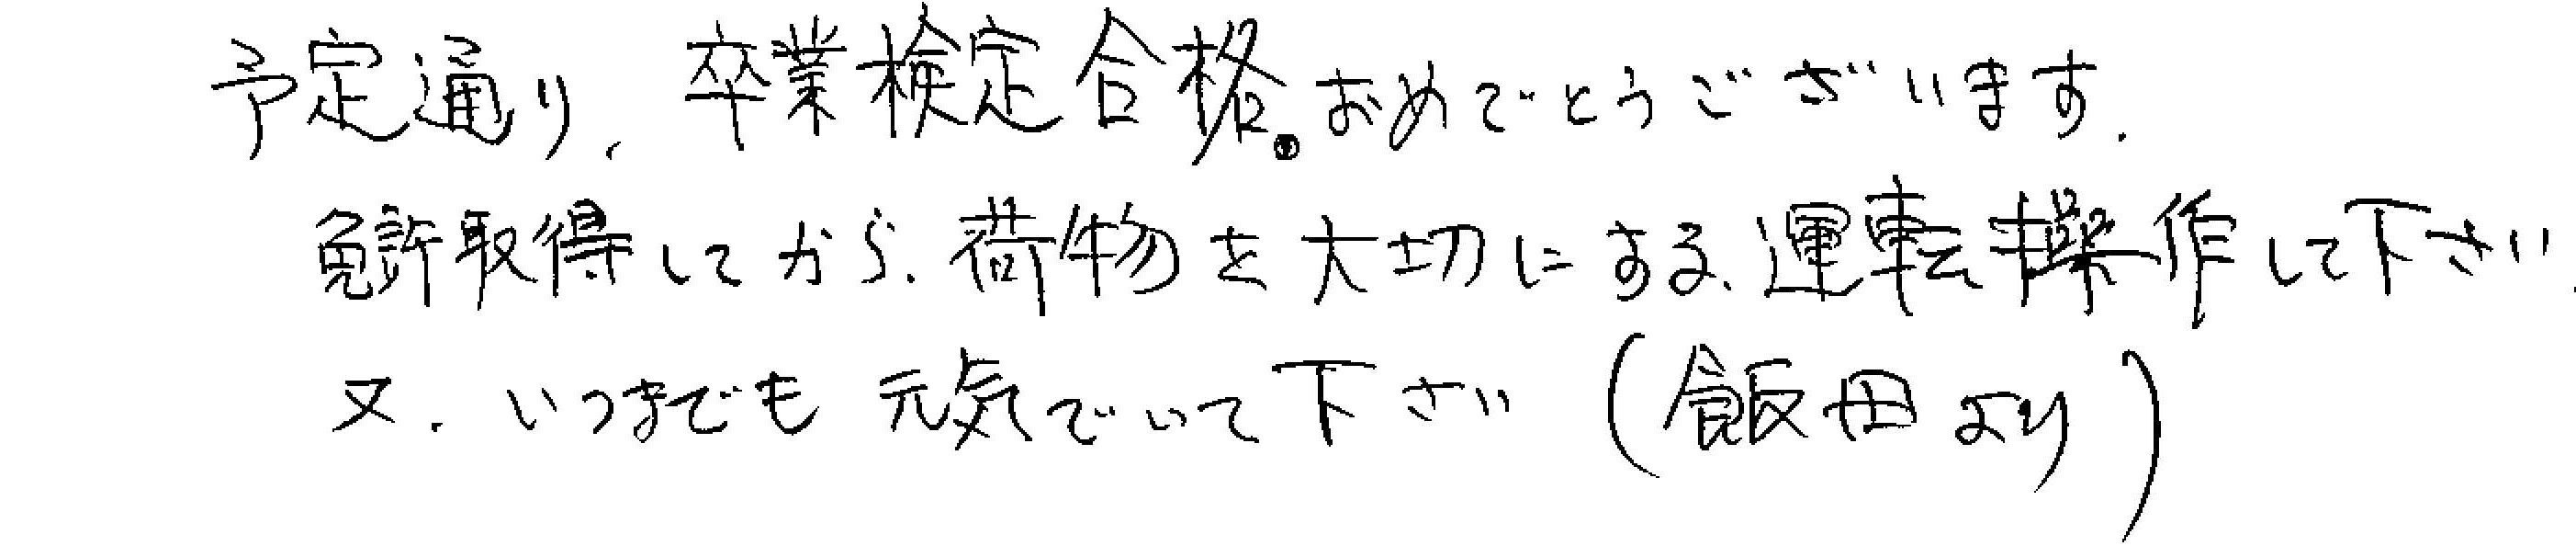 予定通り、卒業検定合格。おめでとうございます.
免許取得してから、荷物を大切にする、運転操作して下さい.
又、いつまでも元気でいて下さい(飯田より)